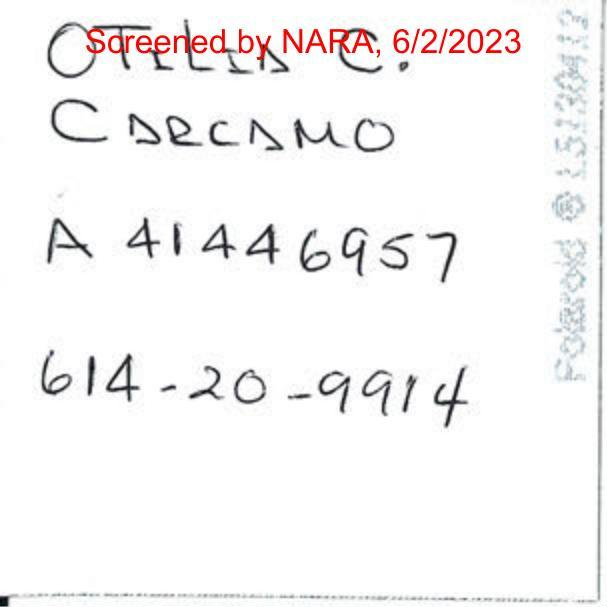 Screened by NARA, 6/2/2023
OTILIA C.
CARCAMO
A 41446957
614-20-9914
Polaroid @